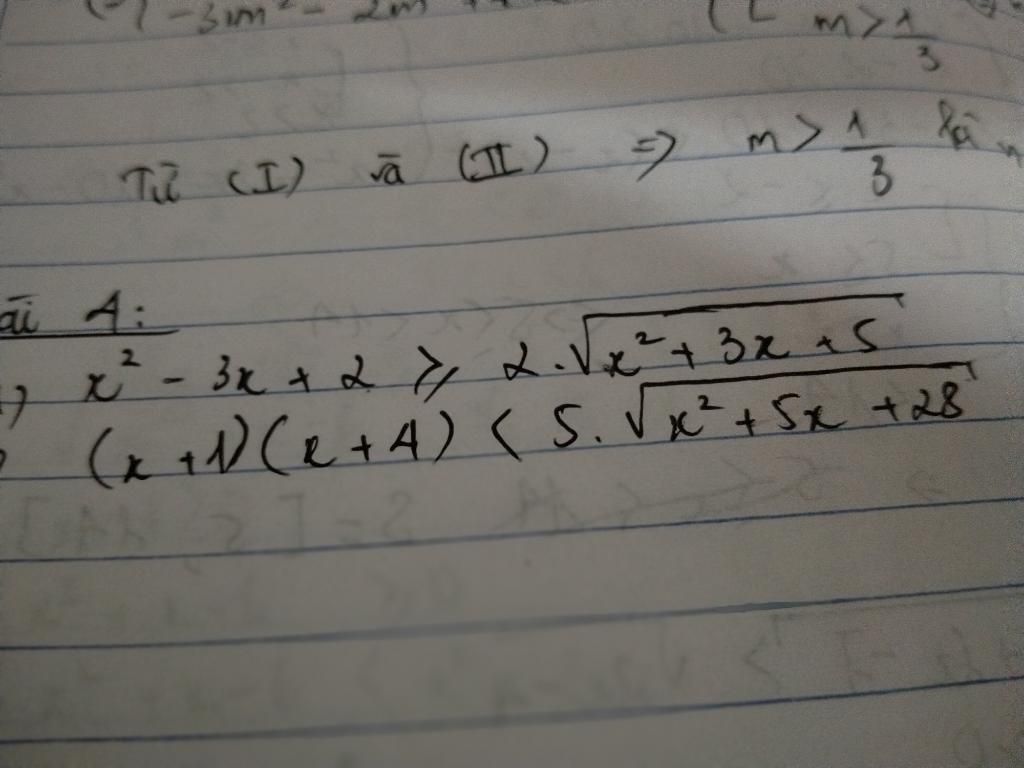 - 3m² - 2m
m > 1/3
Từ (I) và (II) => m > 1/3 là
ài 4:
x² - 3x + 2 ≥ 2.√(x² + 3x + 5)
(x + 1)(x + 4) < 5.√(x² + 5x + 28)